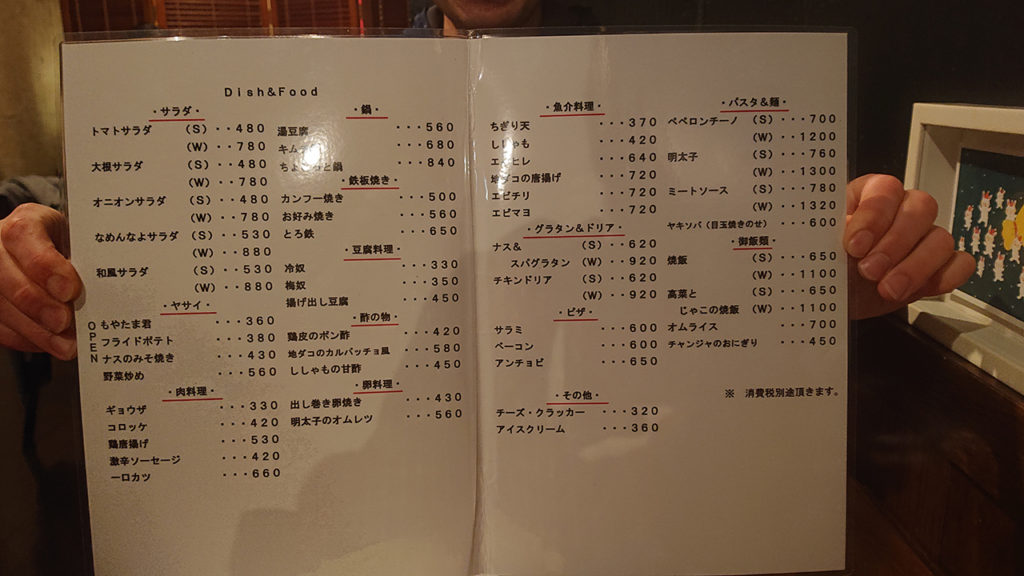 Dish&Food
・サラダ・
トマトサラダ (S)・・480
(W)・・780
大根サラダ (S)・・480
(W)・・780
オニオンサラダ (S)・・480
(W)・・780
なめんなよサラダ (S)・・530
(W)・・880
和風サラダ (S)・・530
(W)・・880
・ヤサイ・
OPEN
もやたま君 ・・・360
フライドポテト ・・・380
ナスのみそ焼き ・・・430
野菜炒め ・・・560
・肉料理・
ギョウザ ・・・330
コロッケ ・・・420
鶏唐揚げ ・・・530
激辛ソーセージ ・・・420
一ロカツ ・・・660
・鍋・
湯豆腐 ・・・560
キム ・・・680
ちょ と鍋 ・・・840
・鉄板焼き・
カンフー焼き ・・・500
お好み焼き ・・・560
とろ鉄 ・・・650
・豆腐料理・
冷奴 ・・・330
梅奴 ・・・350
揚げ出し豆腐 ・・・450
・酢の物・
鶏皮のポン酢 ・・・420
地ダコのカルパッチョ風 ・・・580
ししゃもの甘酢 ・・・450
・卵料理・
出し巻き卵焼き ・・・430
明太子のオムレツ ・・・560
・魚介料理・
ちぎり天 ・・・370
ししゃも ・・・420
エイヒレ ・・・640
地ダコの唐揚げ ・・・720
エビチリ ・・・720
エビマヨ ・・・720
・グラタン&ドリア・
ナス& (S)・・620
スパグラタン (W)・・920
チキンドリア (S)・・620
(W)・・920
・ピザ・
サラミ ・・・600
ベーコン ・・・600
アンチョビ ・・・650
・その他・
チーズ・クラッカー ・・・320
アイスクリーム ・・・360
・パスタ&麺・
ペペロンチーノ (S)・・・700
(W)・・・1200
明太子 (S)・・・760
(W)・・・1300
ミートソース (S)・・・780
(W)・・・1320
ヤキソバ(目玉焼きのせ)・・・600
・御飯類・
焼飯 (S)・・・650
(W)・・・1100
高菜と (S)・・・650
じゃこの焼飯 (W)・・・1100
オムライス ・・・700
チャンジャのおにぎり ・・・450
※ 消費税別途頂きます。